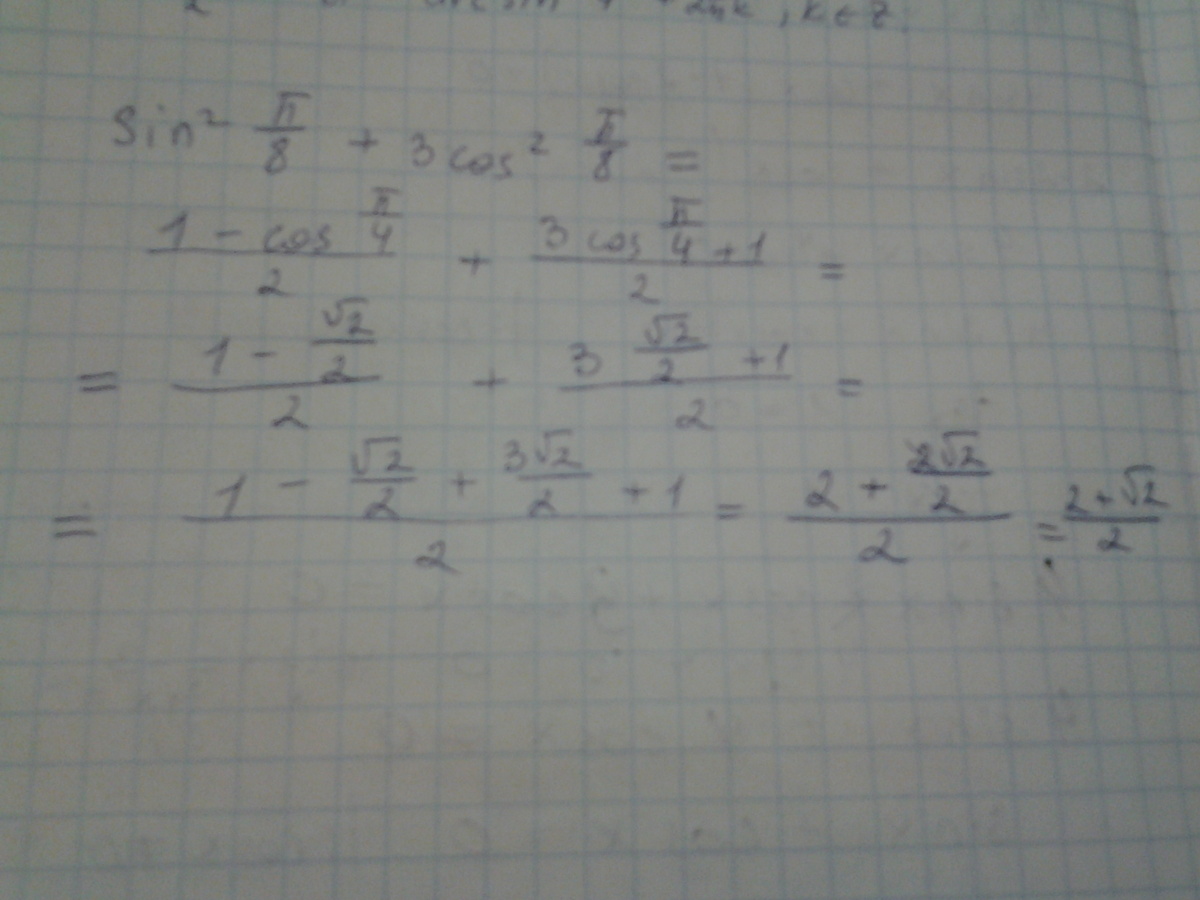 2 arcsin 4 + 2πk, k ∈ Z.
Sin² π/8 + 3 cos² π/8 =
(1 - cos π/4)/2 + (3 cos π/4 + 1)/2 =
= (1 - √2/2)/2 + (3 √2/2 + 1)/2 =
= (1 - √2/2 + 3√2/2 + 1)/2 = (2 + 2√2/2)/2 = (2+√2)/2